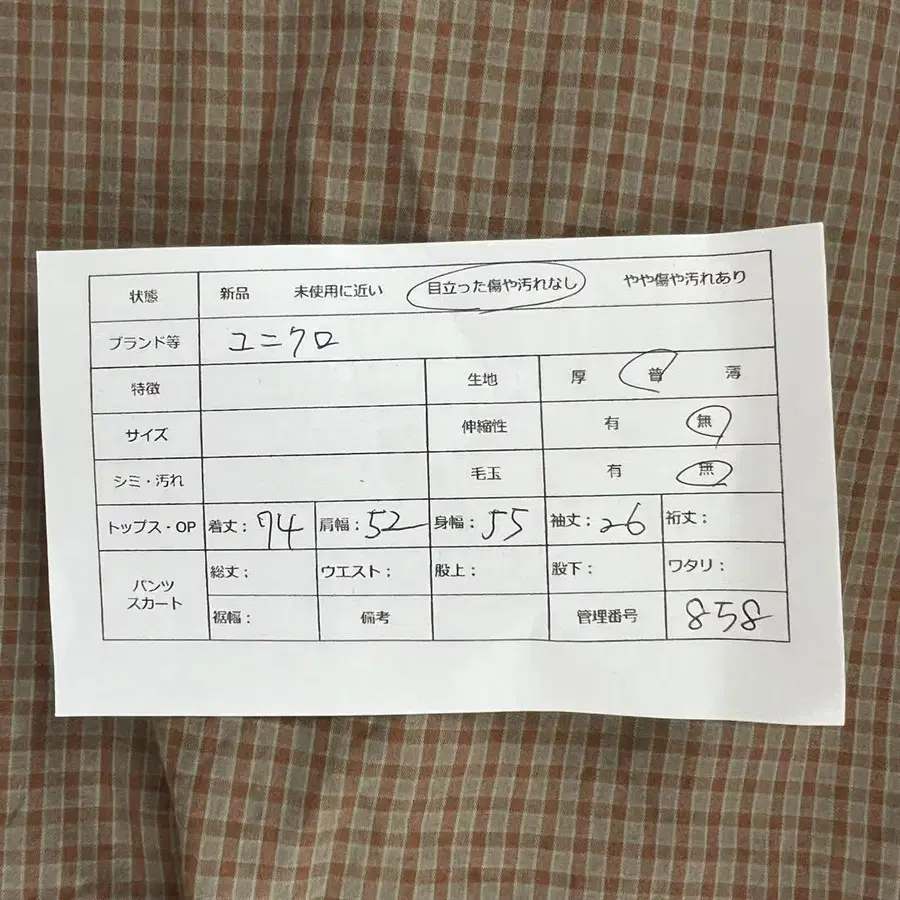 状態 新品 未使用に近い 目立った傷や汚れなし やや傷や汚れあり
ブランド等 ユニクロ
特徴 生地 厚 普 薄
サイズ 伸縮性 有 無
シミ・汚れ 毛玉 有 無
トップス・OP 着丈：74 肩幅：52 身幅：55 袖丈：26 裄丈：
パンツ スカート 総丈： ウエスト： 股上： 股下： ワタリ：
裾幅： 備考 管理番号 858